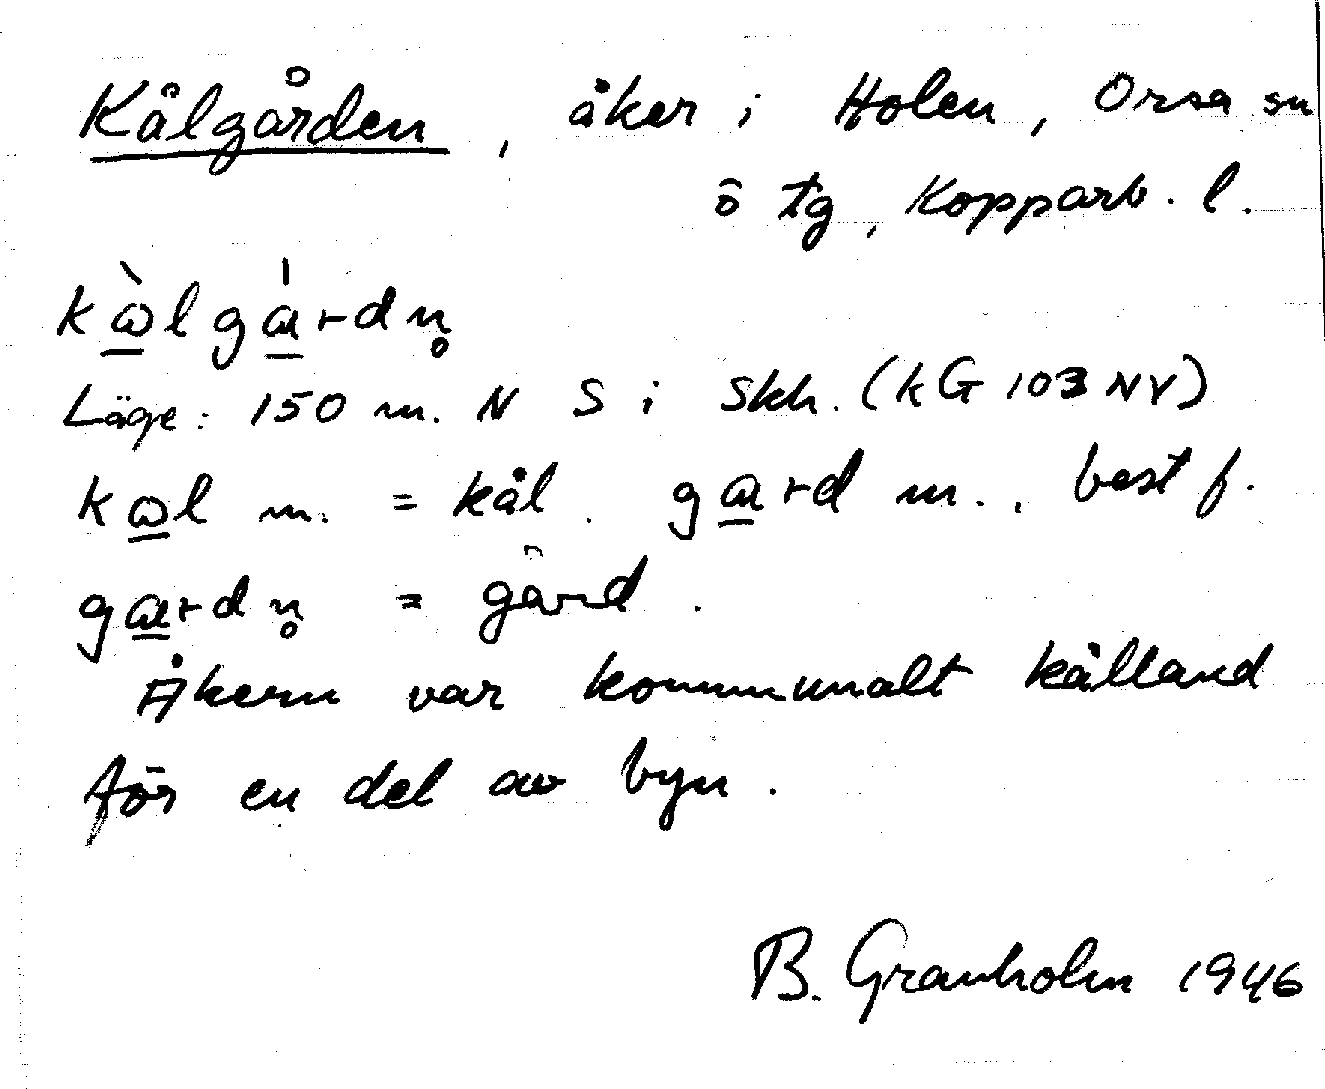 Kålgården, åker i Holen, Orsa sn
ö tg, Kopparb. l.
kὼ̲lgɑ̲́rdn̥
Läge: 150 m. N S i Skh. (kG 103 NV)
kω̲l m. = kål. gɑ̲rd m., best f.
gɑ̲rdn̥ = gård.
Åkern var kommunalt kålland
för en del av byn.
B. Granholm 1946